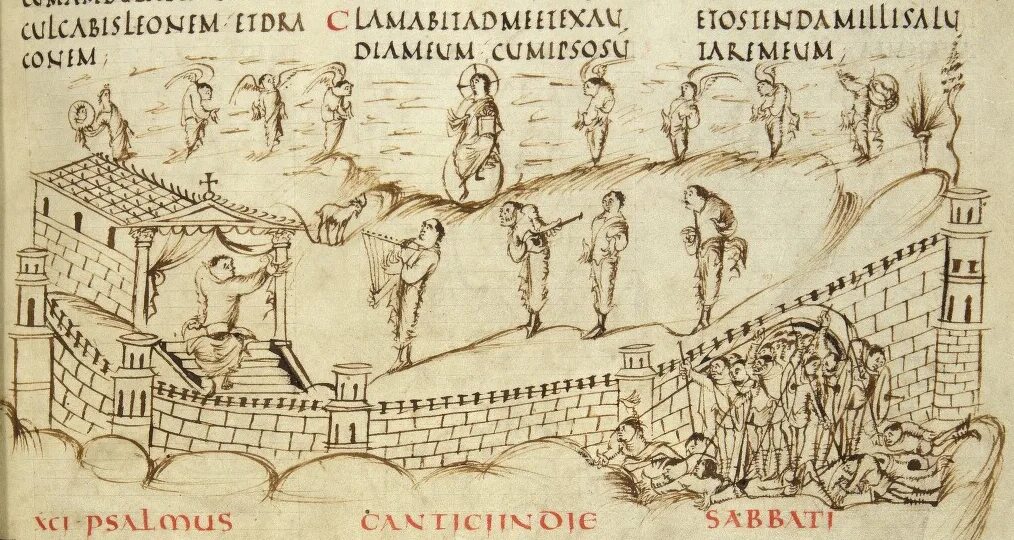 CULCABISLEONEM ETDRA
CONEM;
CLAMABITADMEETEXAU
DIAMEUM CUMIPSOSŪ
ETOSTENDAMILLISALU
TAREMEUM;
XCI · PSALMUS CANTICIINDIE SABBATI